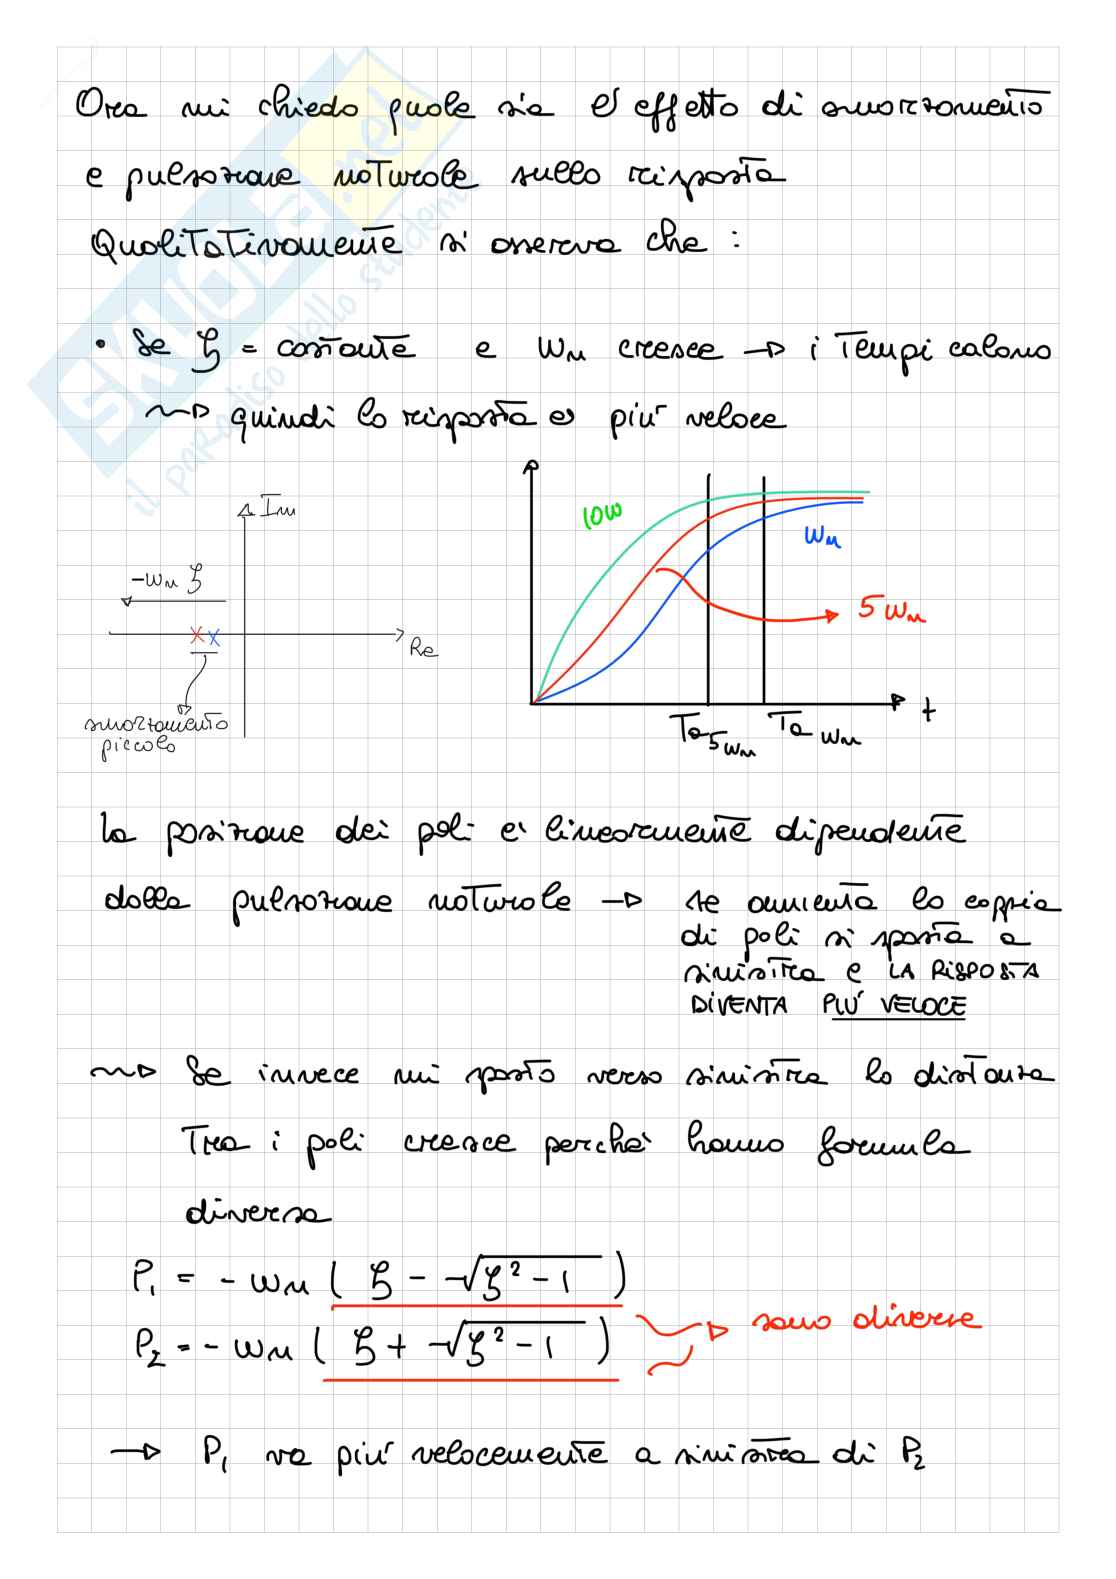 Ora mi chiedo quale sia l'effetto di smorzamento
e pulsazione naturale sulla risposta
Qualitativamente si osserva che :
• Se ζ = costante e ωn cresce → i Tempi calano
⇝ quindi la risposta è più veloce
Im
-ωn ζ
Re
smorzamento
piccolo
10ω
ωn
5ωn
Ta 5ωn
Ta ωn
t
la posizione dei poli è linearmente dipendente
dalla pulsazione naturale → se aumenta la coppia
di poli si sposta a
sinistra e LA RISPOSTA
DIVENTA PIU' VELOCE
⇝ Se invece mi sposto verso sinistra la distanza
Tra i poli cresce perchè hanno formula
diversa
P1 = - ωn ( ζ - √ζ² - 1 )
P2 = - ωn ( ζ + √ζ² - 1 )
sono diverse
→ P1 va più velocemente a sinistra di P2
SKUOLA.net
il paradiso dello studente